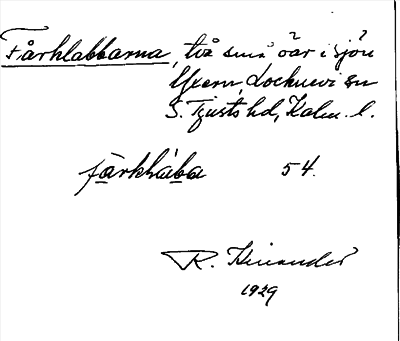 Fårklabbarna, två små öar i sjön
Yxern, Locknevi sn
S. Tjusts hd, Kalm. l.
fårklába 54.
R.
1929